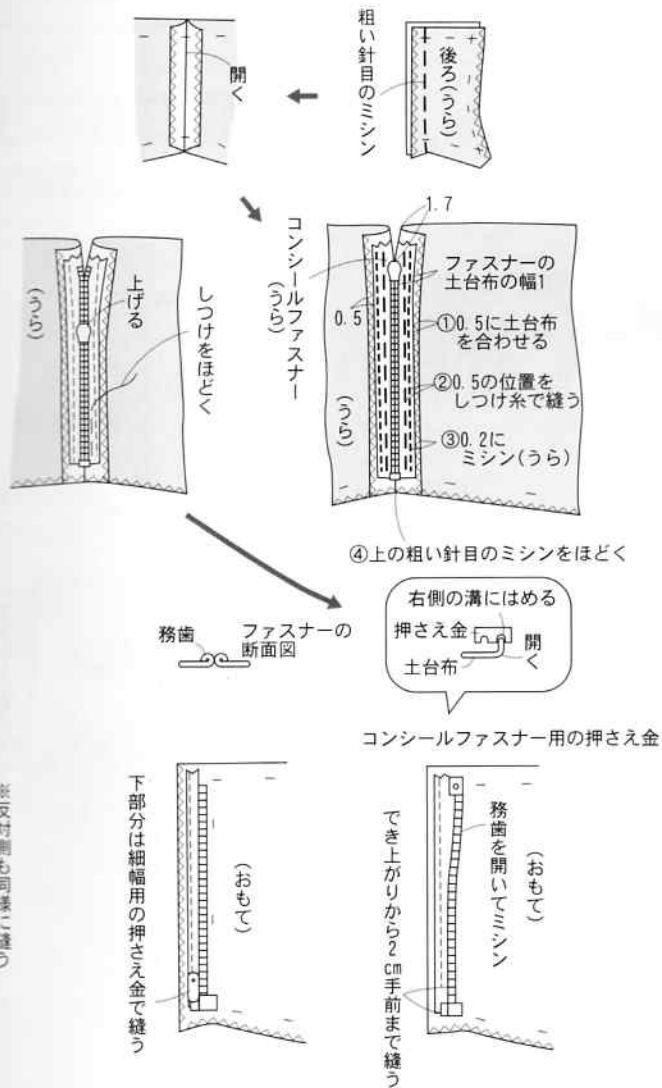 粗い針目のミシン
後ろ(うら)
開く
コンシールファスナー
(うら)
1.7
ファスナーの
土台布の幅1
0.5
①0.5に土台布
を合わせる
②0.5の位置を
しつけ糸で縫う
③0.2に
ミシン(うら)
(うら)
④上の粗い針目のミシンをほどく
(うら)
上げる
しつけをほどく
務歯
ファスナーの
断面図
右側の溝にはめる
押さえ金
開く
土台布
コンシールファスナー用の押さえ金
(おもて)
務歯を開いてミシン
でき上がりから2cm手前まで縫う
(おもて)
下部分は細幅用の押さえ金で縫う
※反対側も同様に縫う